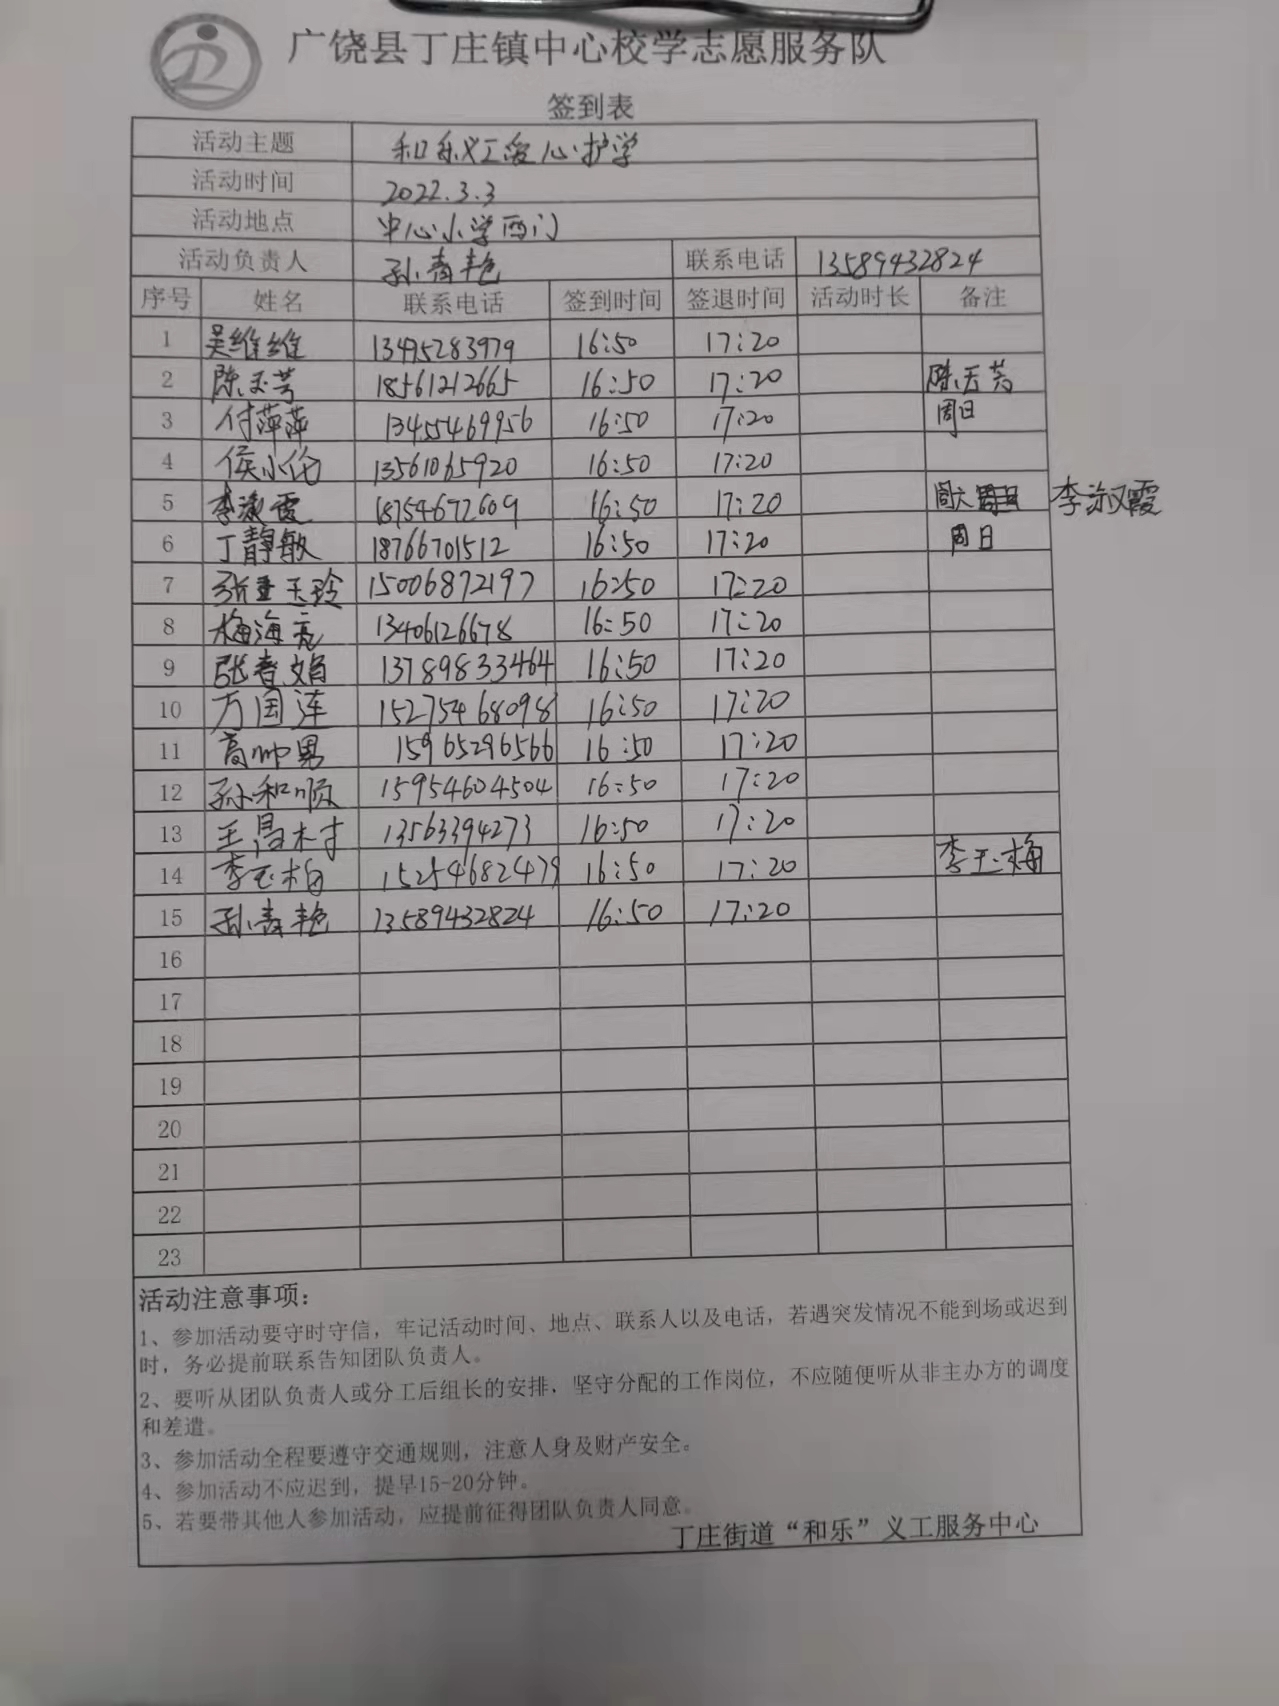 广饶县丁庄镇中心校学志愿服务队
签到表
活动主题 和乐义工爱心护学
活动时间 2022.3.3
活动地点 中心小学西门
活动负责人 孙青艳 联系电话 13589432824
序号 姓名 联系电话 签到时间 签退时间 活动时长 备注
1 吴维维 13495283979 16:50 17:20
2 陈玉芳 18561212665 16:50 17:20 陈玉芳
3 付萍萍 13455469956 16:50 17:20 周日
4 侯小伦 13561065920 16:50 17:20
5 李淑霞 18754672609 16:50 17:20 周六 李淑霞
6 丁静敏 18766701512 16:50 17:20 周日
7 张玉玲 15006872197 16:50 17:20
8 梅海亮 13406126678 16:50 17:20
9 张春娟 13789833464 16:50 17:20
10 方国莲 15275468098 16:50 17:20
11 高帅男 15965296566 16:50 17:20
12 孙和顺 15954604504 16:50 17:20
13 王昌村 13563394273 16:50 17:20
14 李玉梅 15254682479 16:50 17:20 李玉梅
15 孙青艳 13589432824 16:50 17:20
16
17
18
19
20
21
22
23
活动注意事项：
1、参加活动要守时守信，牢记活动时间、地点、联系人以及电话，若遇突发情况不能到场或迟到
时，务必提前联系告知团队负责人。
2、要听从团队负责人或分工后组长的安排，坚守分配的工作岗位，不应随便听从非主办方的调度
和差遣。
3、参加活动全程要遵守交通规则，注意人身及财产安全。
4、参加活动不应迟到，提早15-20分钟。
5、若要带其他人参加活动，应提前征得团队负责人同意。
丁庄街道“和乐”义工服务中心